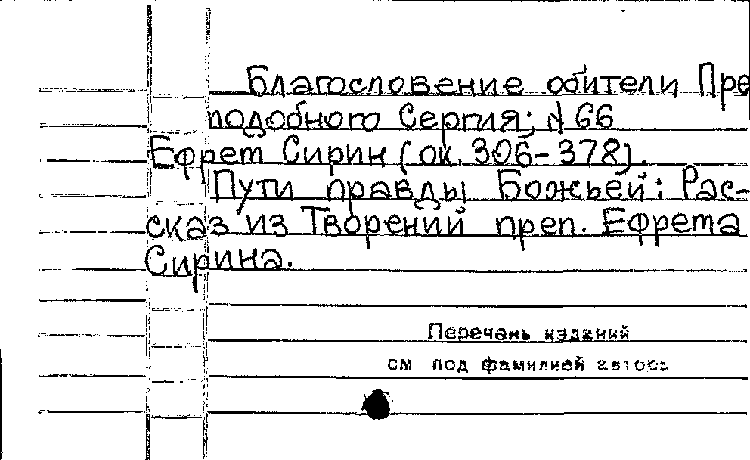 Благословение обители Пре
подобного Сергия; № 66
Ефрет Сирин (ок. 306-378).
Пути правды Божьей: Рас-
сказ из Творений преп. Ефрета
Сирина.
Перечень изданий
см под фамилией автора